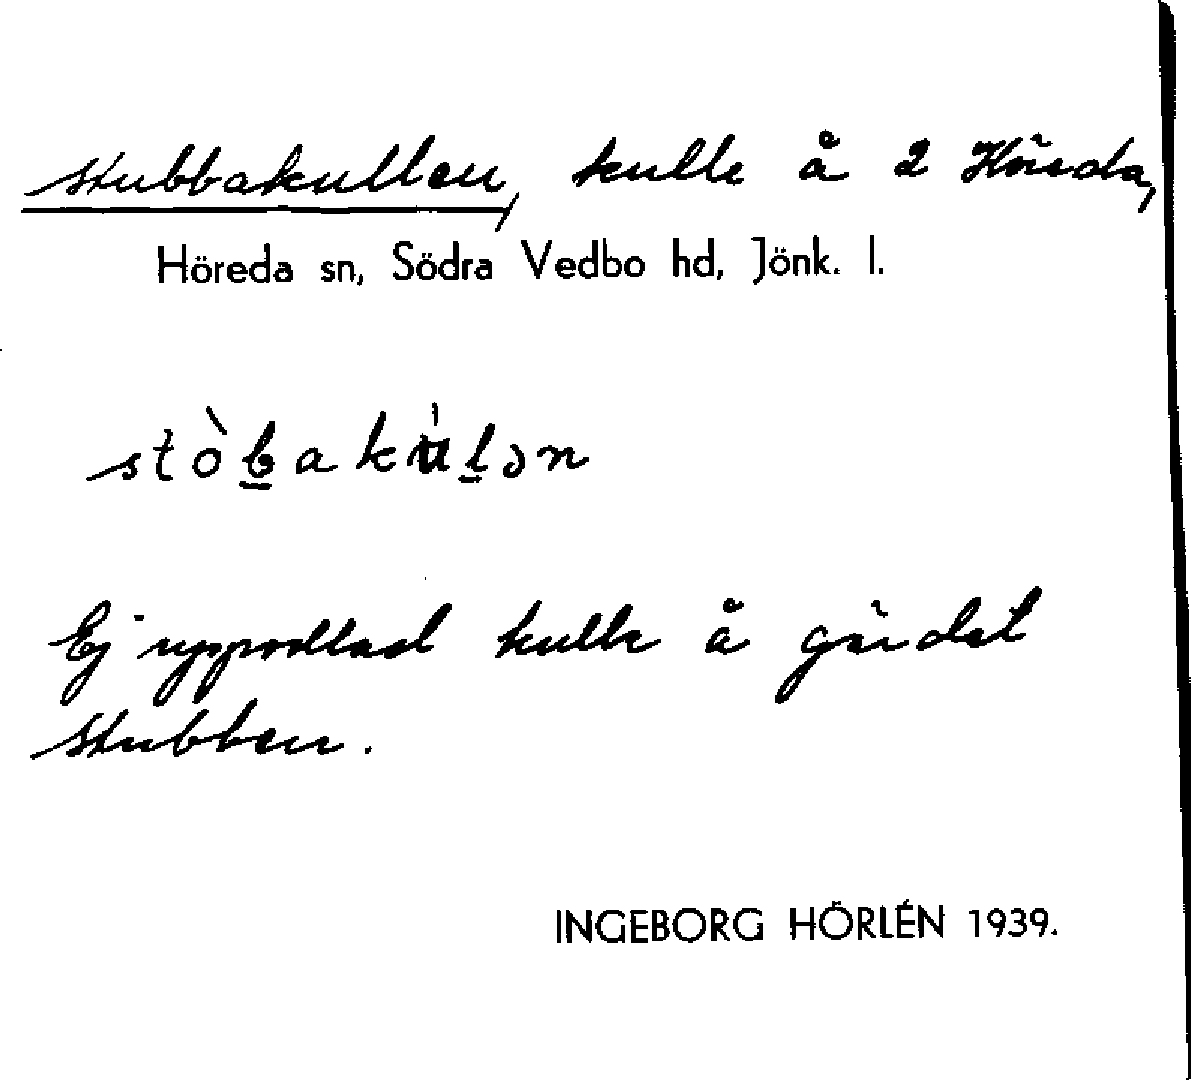 Stubbakullen, kulle å 2 Höreda,
Höreda sn, Södra Vedbo hd, Jönk. l.
stòb̲akùl̲ən
Ej uppodlad kulle å gärdet
Stubben.
INGEBORG HÖRLÉN 1939.